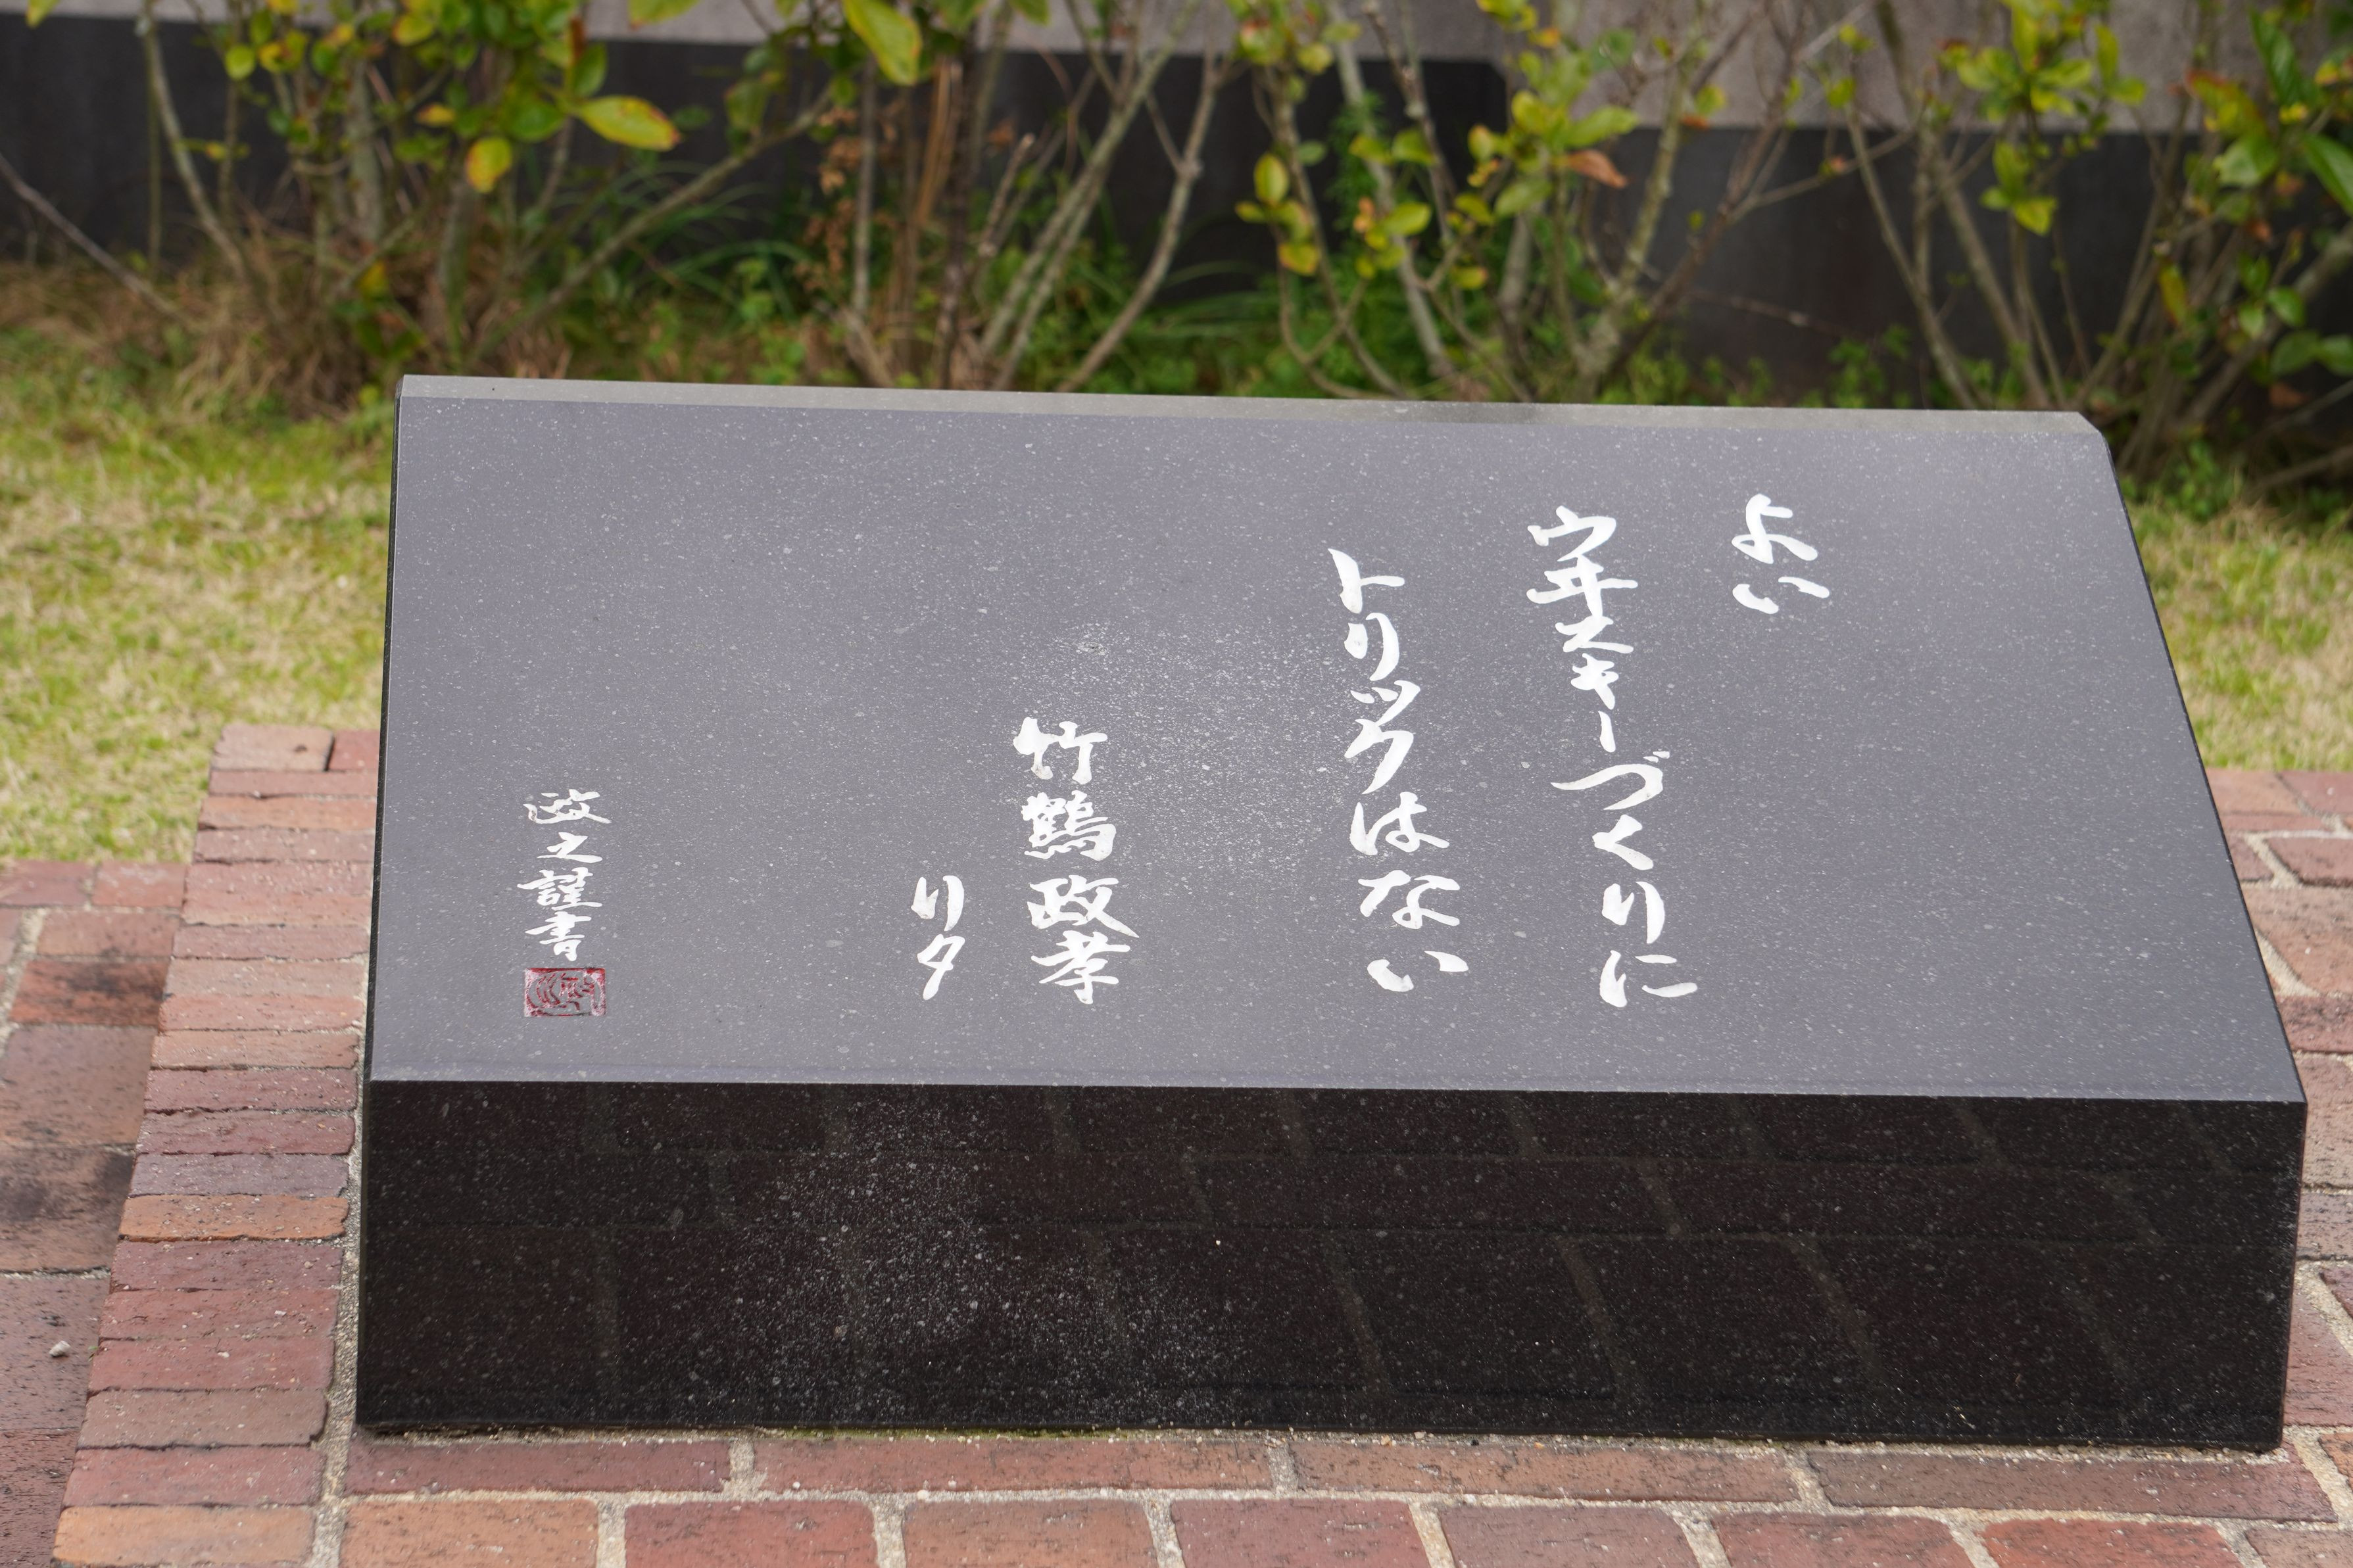 よい
ウ井スキーづくりに
トリックはない
竹鶴政孝
リタ
政之謹書